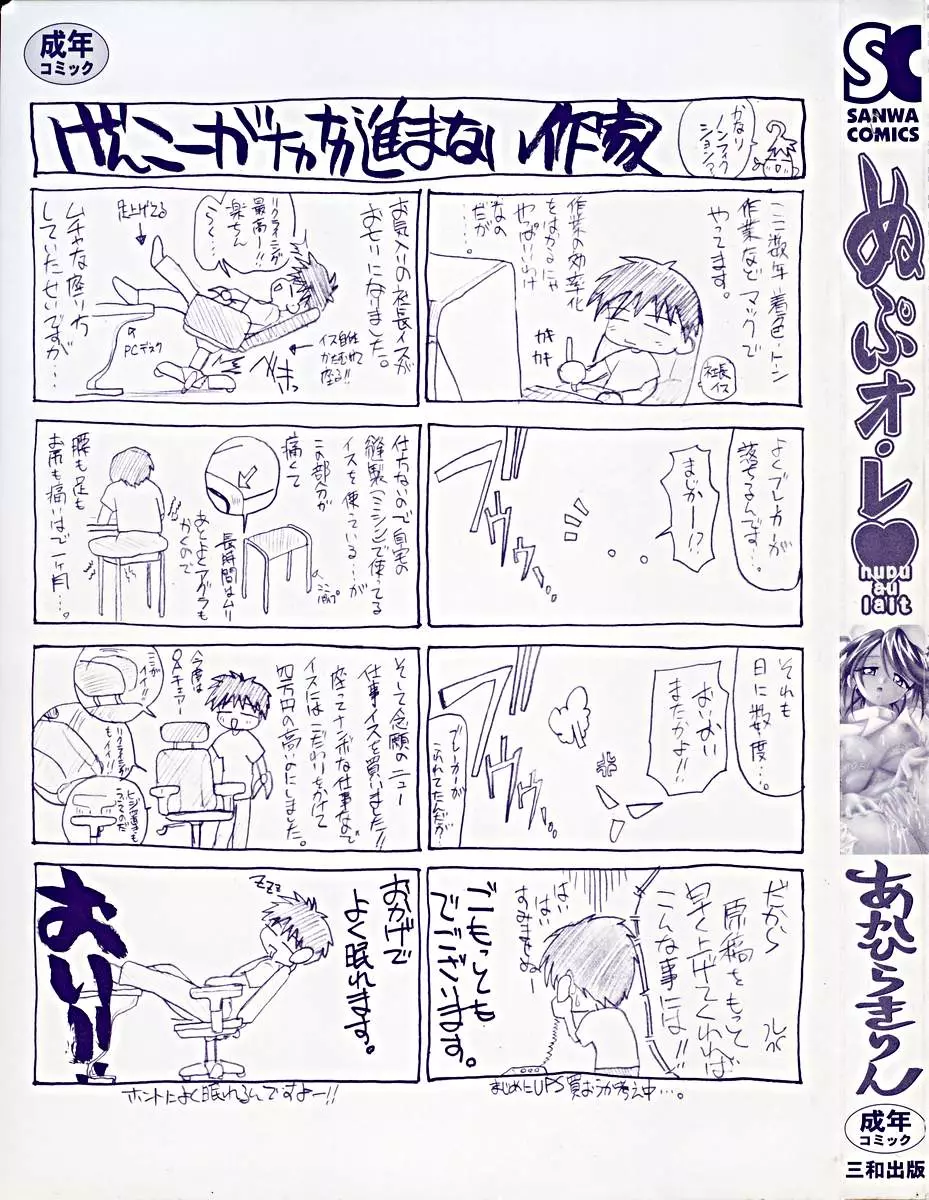 成年
コミック
げんこーがナカナカ進まない作家
かなり
ノンフィク
ションマ
ここ数年着色・トン
作業など マックで
やってます。
作業の効率化
をはかるにゃ
やっぱいいわけ
なの
だが
……
カキ
カキ
社長
イス
よくブレーカーが
落ちるんです…。
まじかー!?
ブッ
それも
日に数度…。
おいおい
またかよ!!
ブレーカーが
ふれてたんだが…
だから
原稿をもって
早く上げてくれれば
こんな事には!!
はい
はい
すみませぬ
ごもっとも
でございます。
まじめにUPS買おうか考え中…。
お気入りの社長イスが
おしゃかになりました。
リクライニングが
最高ー!!
楽ちん
らく…
足上げてる
ムチャな座り方
していたせいですが…
PCデスク
イス自体
かたむけて
座る!!
仕方ないので自宅の
縫製(ミシン)で使ってる
イスを使っている…が
この部分が
痛くて
長時間はムリ
あとよくアグラも
かくので
腰も足も
お尻も痛いまで一ヶ月…。
そして念願のニュー
仕事イスを買いました!!
座ってナンボな仕事なので
イスにはこだわりをかけて
四万円の高いのにしました。
今度は
OAチェアー
ここが
イイ!!
リクライニングが
もイイ!!
ヒジ置きも
ついてるのだ
おかげで
よく眠れます。
ZZZ
おい!!
ホントによく眠れるんですよー!!
SC
SANWA
COMICS
ぬぷオ・レ
nupu
au
lait
あかひらきりん
成年
コミック
三和出版